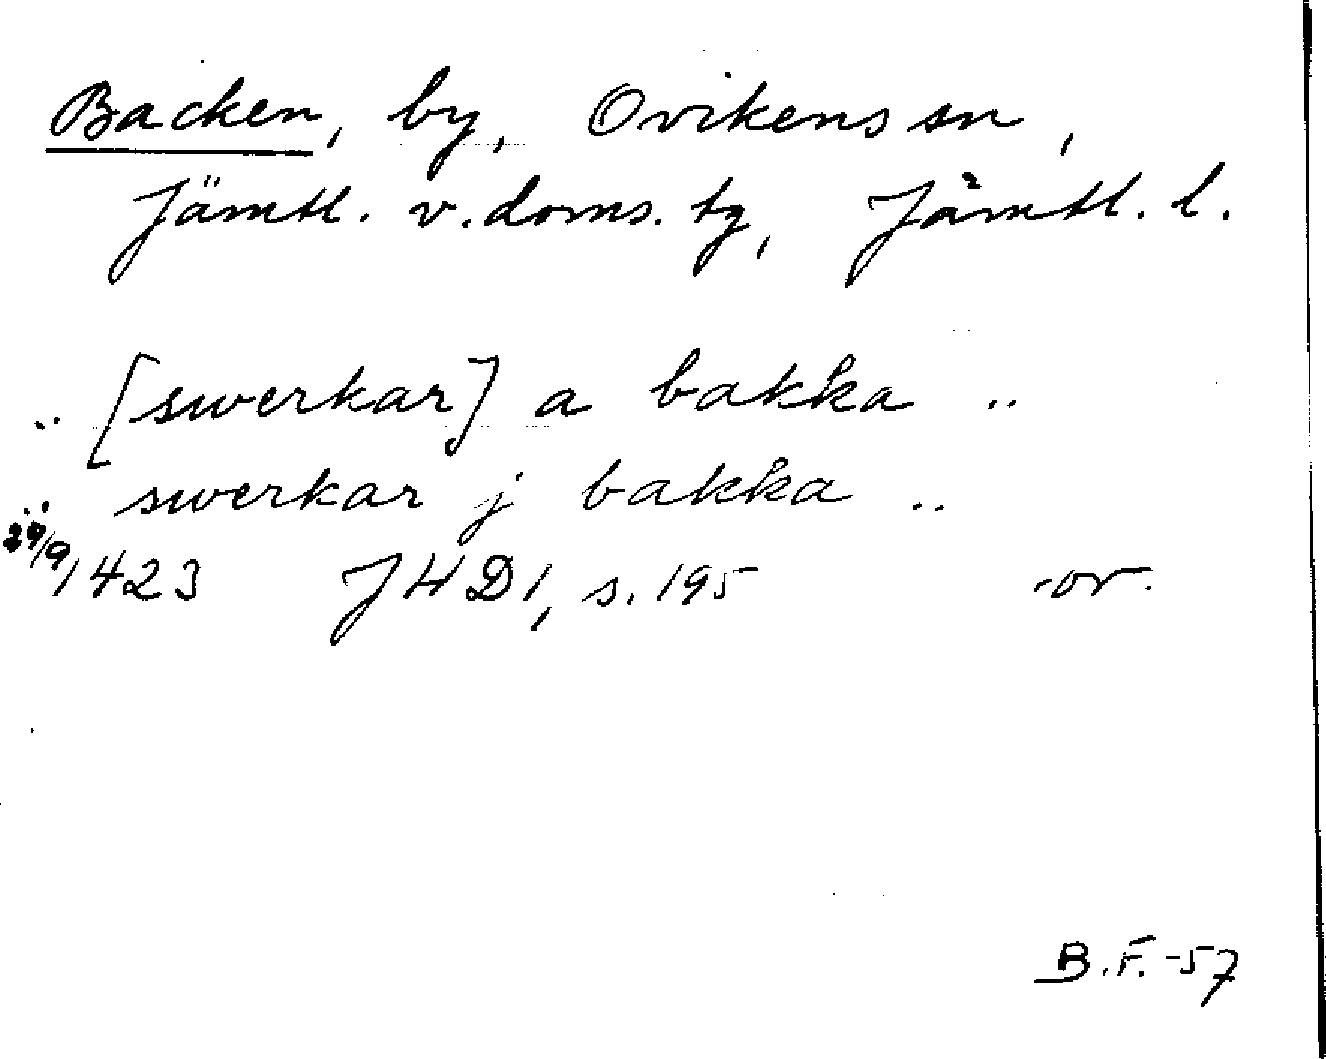 Backen, by, Ovikens sn,
Jämtl. v. doms. tg, Jämtl. l.
.. [swerkar] a bakka ..
.. swerkar j bakka ..
29/9 1423 JHD 1, s. 195 or.
B.F. -57